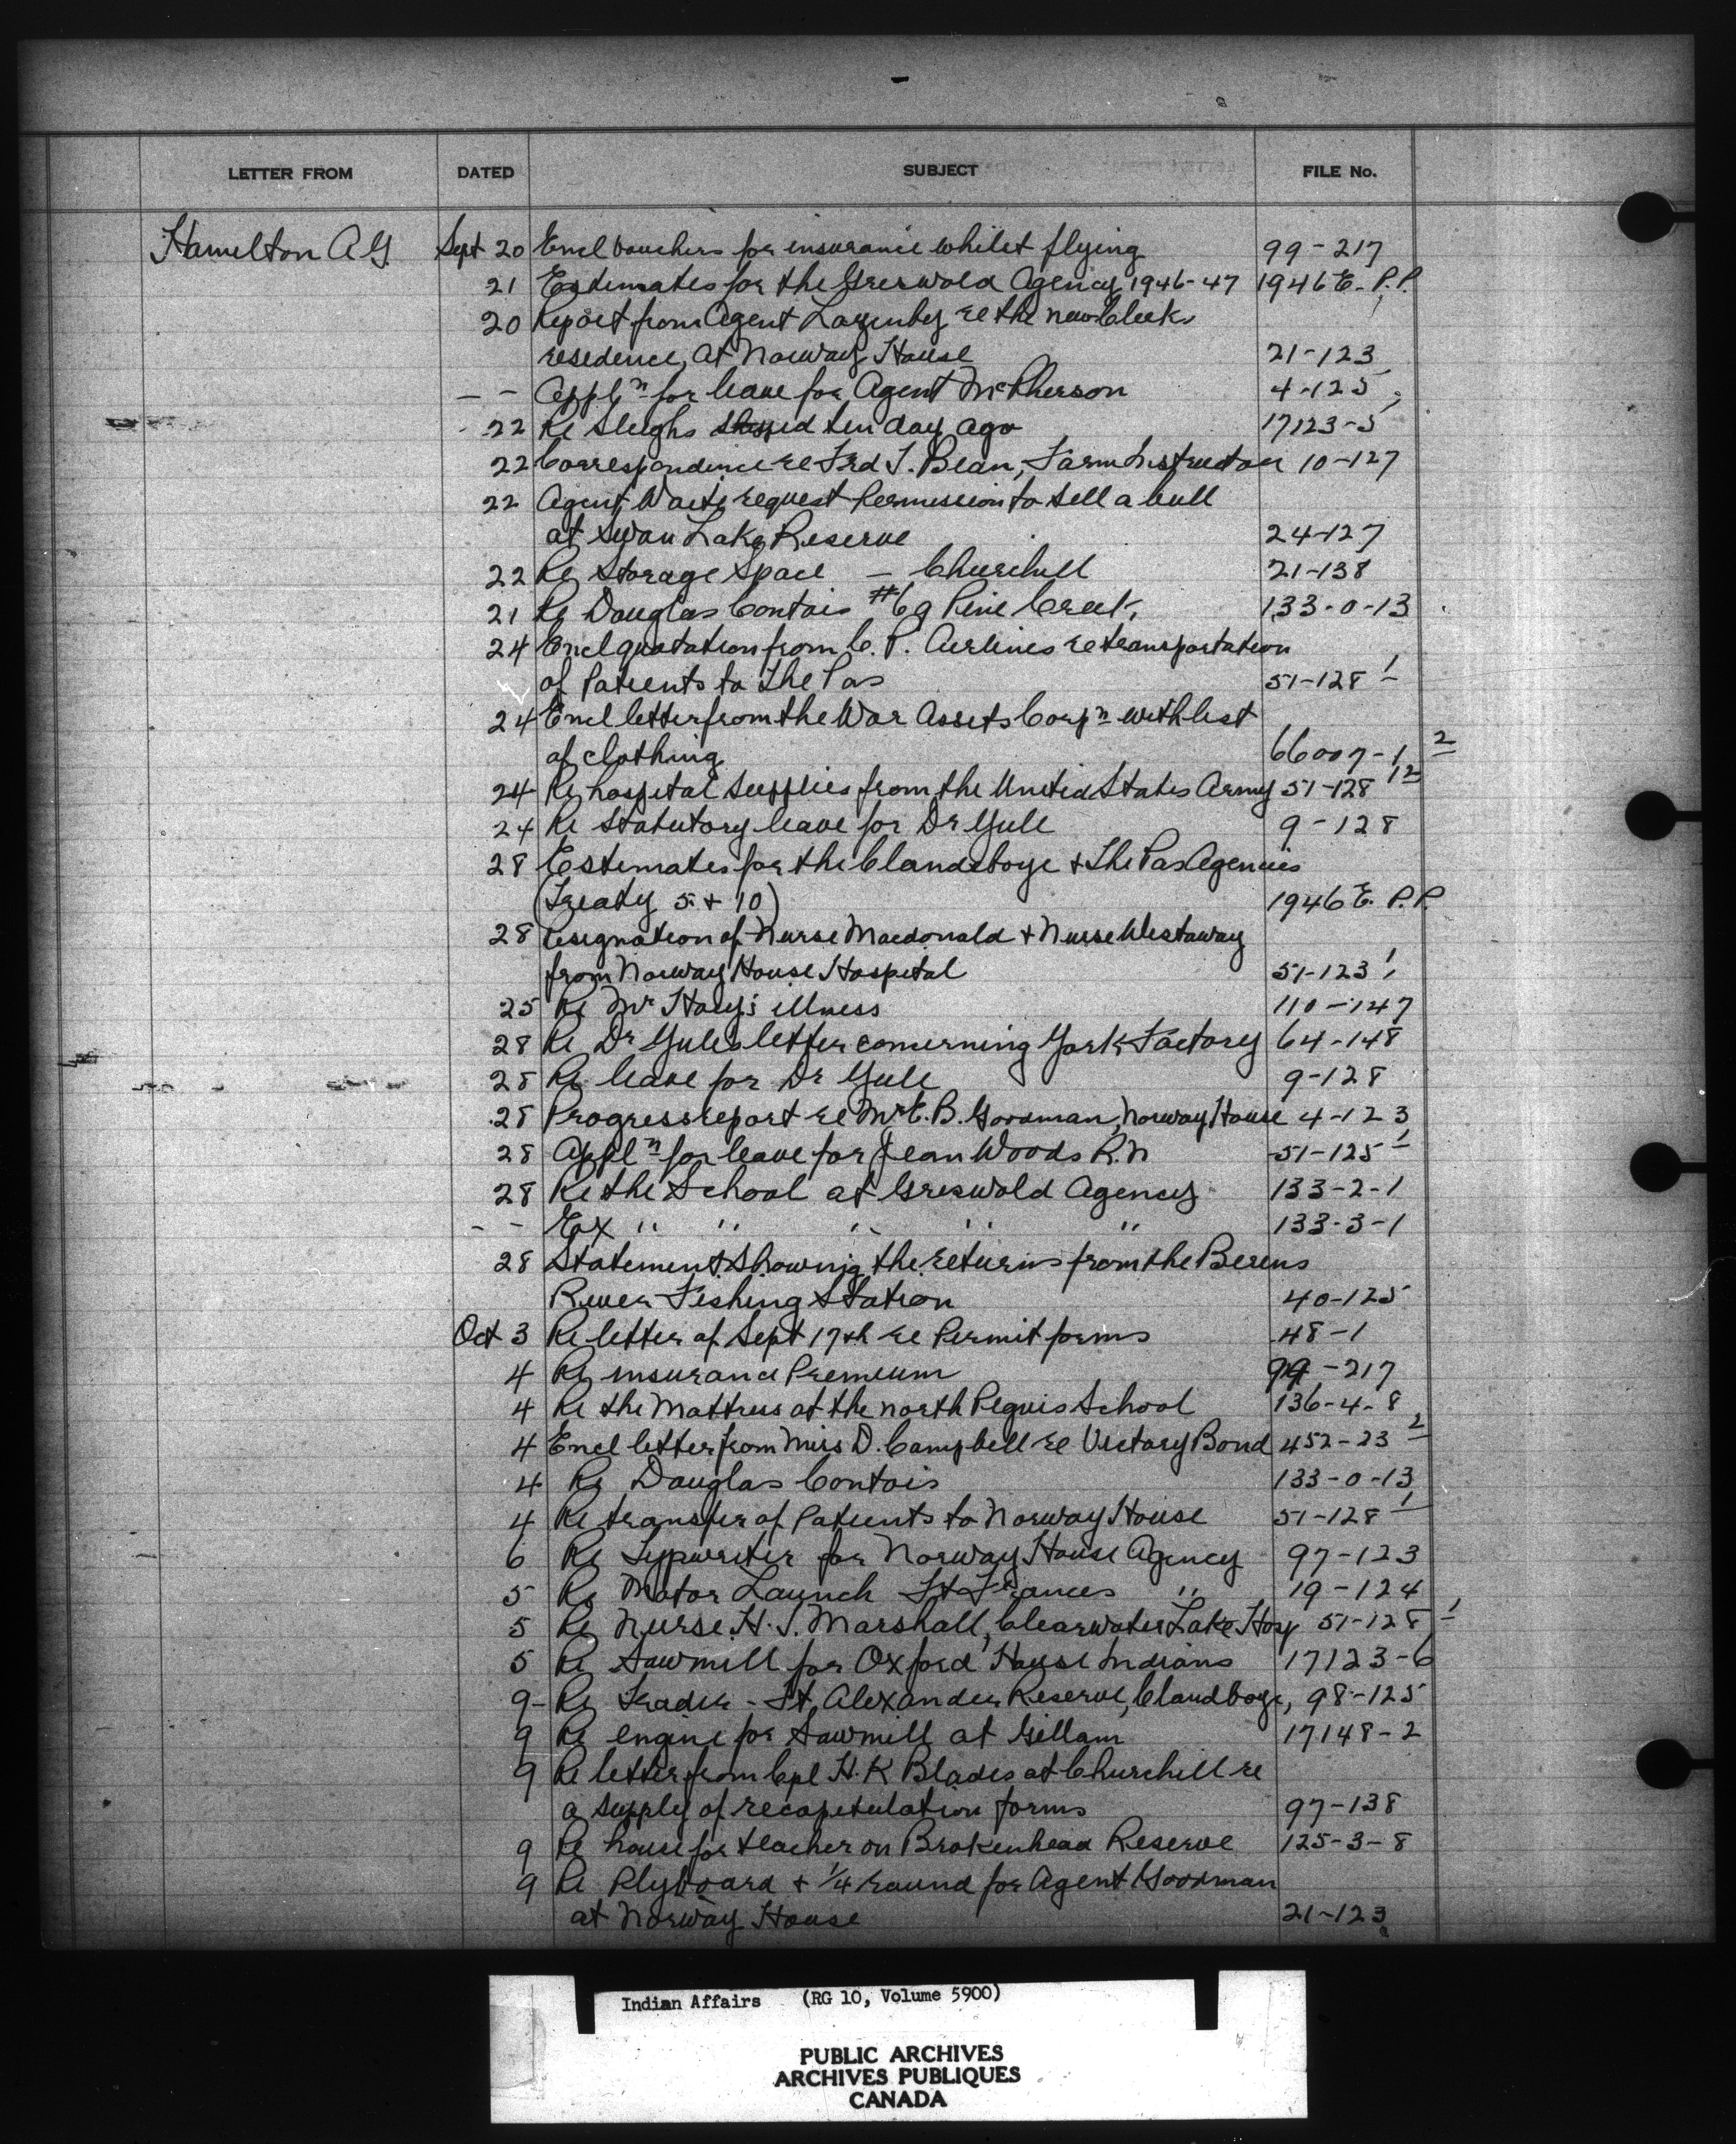 LETTER FROM DATED SUBJECT FILE No.
Hamilton A G Sept 20 Encl vouchers for insurance whilst flying 99-217
21 Estimates for the Griswold Agency 1946-47 1946 E. P.P.
20 Report from Agent Lazenby re the new Clerks
residence, at Norway House 21-123
— — Appln for leave for Agent McPherson 4-125
22 Re Sleighs ten day ago 17123-5
22 Correspondence re Fred T. Bean, Farm Instructor 10-127
22 Agent Waite request Permission to sell a bull
at Swan Lake Reserve 24-127
22 Re Storage Space — Churchill 21-138
21 Re Douglas Contois #69 Pine Creek, 133-0-13
24 Encl quotation from C. P. Airlines re transportation
of Patients to The Pas 51-128 1
24 Encl letter from the War Assets Corpn with list
of clothing 66007-1 2
24 Re hospital supplies from the United States Army 51-128 12
24 Re Statutory leave for Dr Yule 9-128
28 Estimates for the Clandeboye + The Pas Agencies
(Treaty 5 + 10) 1946 E. P.P.
28 Resignation of Nurse Macdonald + Nurse Westaway
from Norway House Hospital 51-123 1
25 Re Mr Hoey's illness 110-147
28 Re Dr Yules letter concerning York Factory 64-148
28 Re leave for Dr Yule 9-128
28 Progress report re Mr E. B. Goodman, Norway House 4-123
28 Appln for leave for Jean Woods R.N 51-125 1
28 Re the School at Griswold Agency 133-2-1
— — Ex " " " " " 133-3-1
28 Statement showing the returns from the Berens
River Fishing Station 40-125
Oct 3 Re letter of Sept 17th re Permit forms 48-1
4 Re insurance Premium 99-217
4 Re the Mattress at the north Peguis School 136-4-8
4 Encl letter from Miss D. Campbell re Victory Bond 452-23 2
4 Re Douglas Contois 133-0-13
4 Re transfer of Patients to Norway House 51-128 1
6 Re Typwriter for Norway House Agency 97-123
5 Re Motor Launch Ft Frances " 19-124
5 Re Nurse H. J. Marshall, Clearwater Lake Hosp 51-128 1
5 Re Sawmill for Oxford House Indians 17123-6
9- Re Trader - Ft. Alexander Reserve, Clandboye, 98-125
9 Re engine for Sawmill at Gillam 17148-2
9 Re letter from Cpl H. K Blades at Churchill re
a supply of recapitulation forms 97-138
9 Re house for teacher on Brokenhead Reserve 125-3-8
9 Re Plyboard + 1/4 round for Agent Goodman
at Norway House 21-123
Indian Affairs (RG 10, Volume 5900)
PUBLIC ARCHIVES
ARCHIVES PUBLIQUES
CANADA